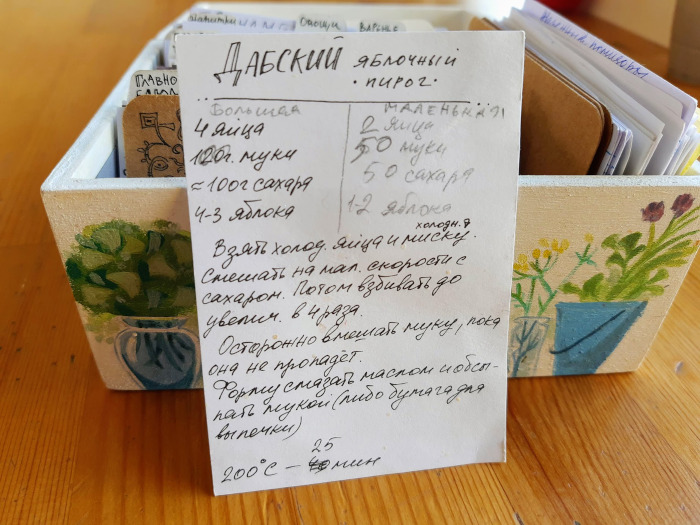 Овощи
ВАРЕНЬЕ
ГЛАВНО
ДАБСКИЙ ЯБЛОЧНЫЙ
· ПИРОГ ·
БОЛЬШАЯ МАЛЕНЬКАЯ
4 яйца 2 яйца
120г. муки 50 муки
≈100г сахара 50 сахара
4-3 яблока 1-2 яблока
холодн.
Взять холод. яйца и миску.
Смешать на мал. скорости с
сахаром. Потом взбивать до
увелич. в 4 раза.
Осторожно вмешать муку, пока
она не пропадёт.
Форму смазать маслом и обсы-
пать мукой (либо бумага для
выпечки)
25
200°C – 40 мин